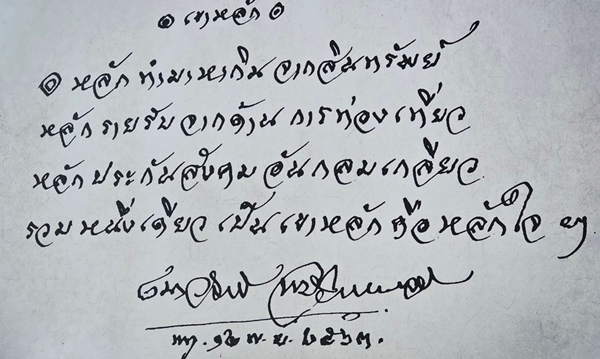 ๏ เขาหลัก ๏
๏ หลัก ทำมาหากิน จากสินทรัพย์
หลัก รายรับ จากด้าน การท่องเที่ยว
หลัก ประกันสังคม อันกลมเกลียว
รวม หนึ่งเดียว เป็น เขาหลัก คือ หลักใจ ๚
๑๒ พ.ย. ๒๕๖๓.